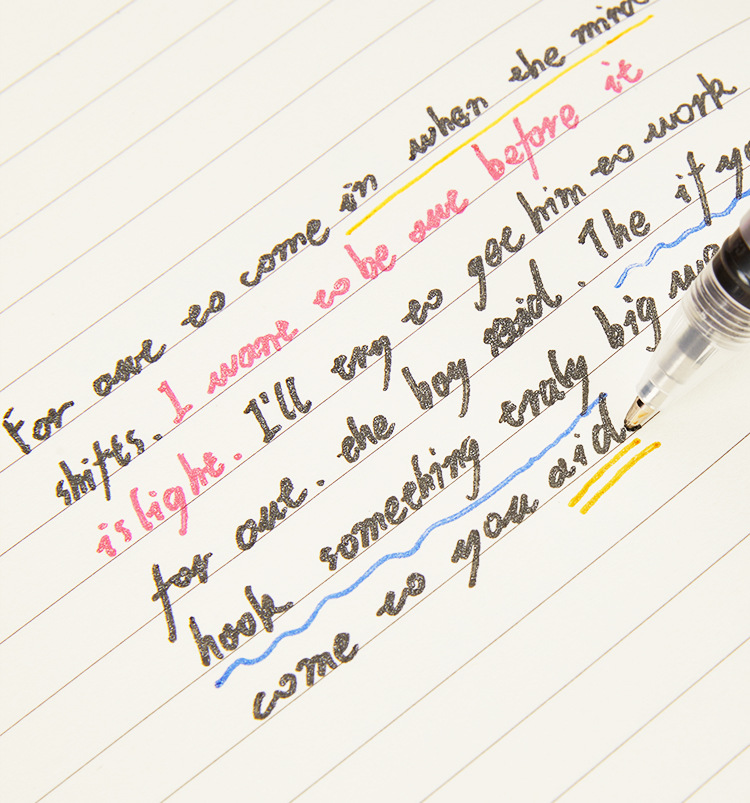 For one to come in when the
shifts. I want to be out before it
is light. I'll try to get him to work
for out. the boy said. The if
hook something truly big
come to you aid